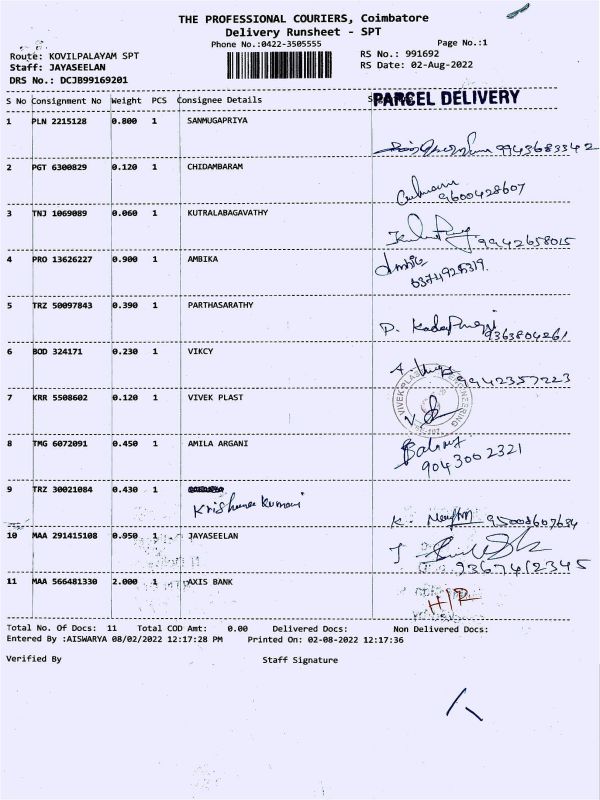 THE PROFESSIONAL COURIERS, Coimbatore
Delivery Runsheet - SPT
Phone No.:0422-3505555 Page No.:1
Route: KOVILPALAYAM SPT RS No.: 991692
Staff: JAYASEELAN RS Date: 02-Aug-2022
DRS No.: DCJB99169201
S No Consignment No Weight PCS Consignee Details PARCEL DELIVERY
1 PLN 2215128 0.800 1 SANMUGAPRIYA
9943683342
2 PGT 6300829 0.120 1 CHIDAMBARAM
9600428607
3 TNJ 1069089 0.060 1 KUTRALABAGAVATHY
9942658015
4 PRO 13626227 0.900 1 AMBIKA
Ambika
5 TRZ 50097843 0.390 1 PARTHASARATHY
P.
9363804261
6 BOD 324171 0.230 1 VIKCY
9942357223
7 KRR 5508602 0.120 1 VIVEK PLAST
8 TMG 6072091 0.450 1 AMILA ARGANI
9043002321
9 TRZ 30021084 0.430 1
Krishna Kumari
K. 95008607684
10 MAA 291415108 0.950 1 JAYASEELAN
J
9367412345
11 MAA 566481330 2.000 1 AXIS BANK
Total No. Of Docs: 11 Total COD Amt: 0.00 Delivered Docs: Non Delivered Docs:
Entered By :AISWARYA 08/02/2022 12:17:28 PM Printed On: 02-08-2022 12:17:36
Verified By Staff Signature